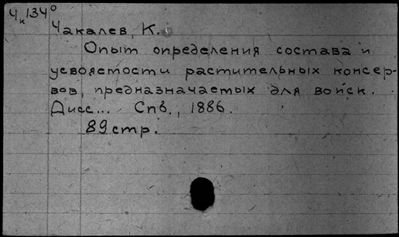 Чк134°
Чакалев, К.
Опыт определения состава и
усвояемости растительных консер-
вов, предназначаемых для войск.
Дисс... Спб., 1886.
89 стр.